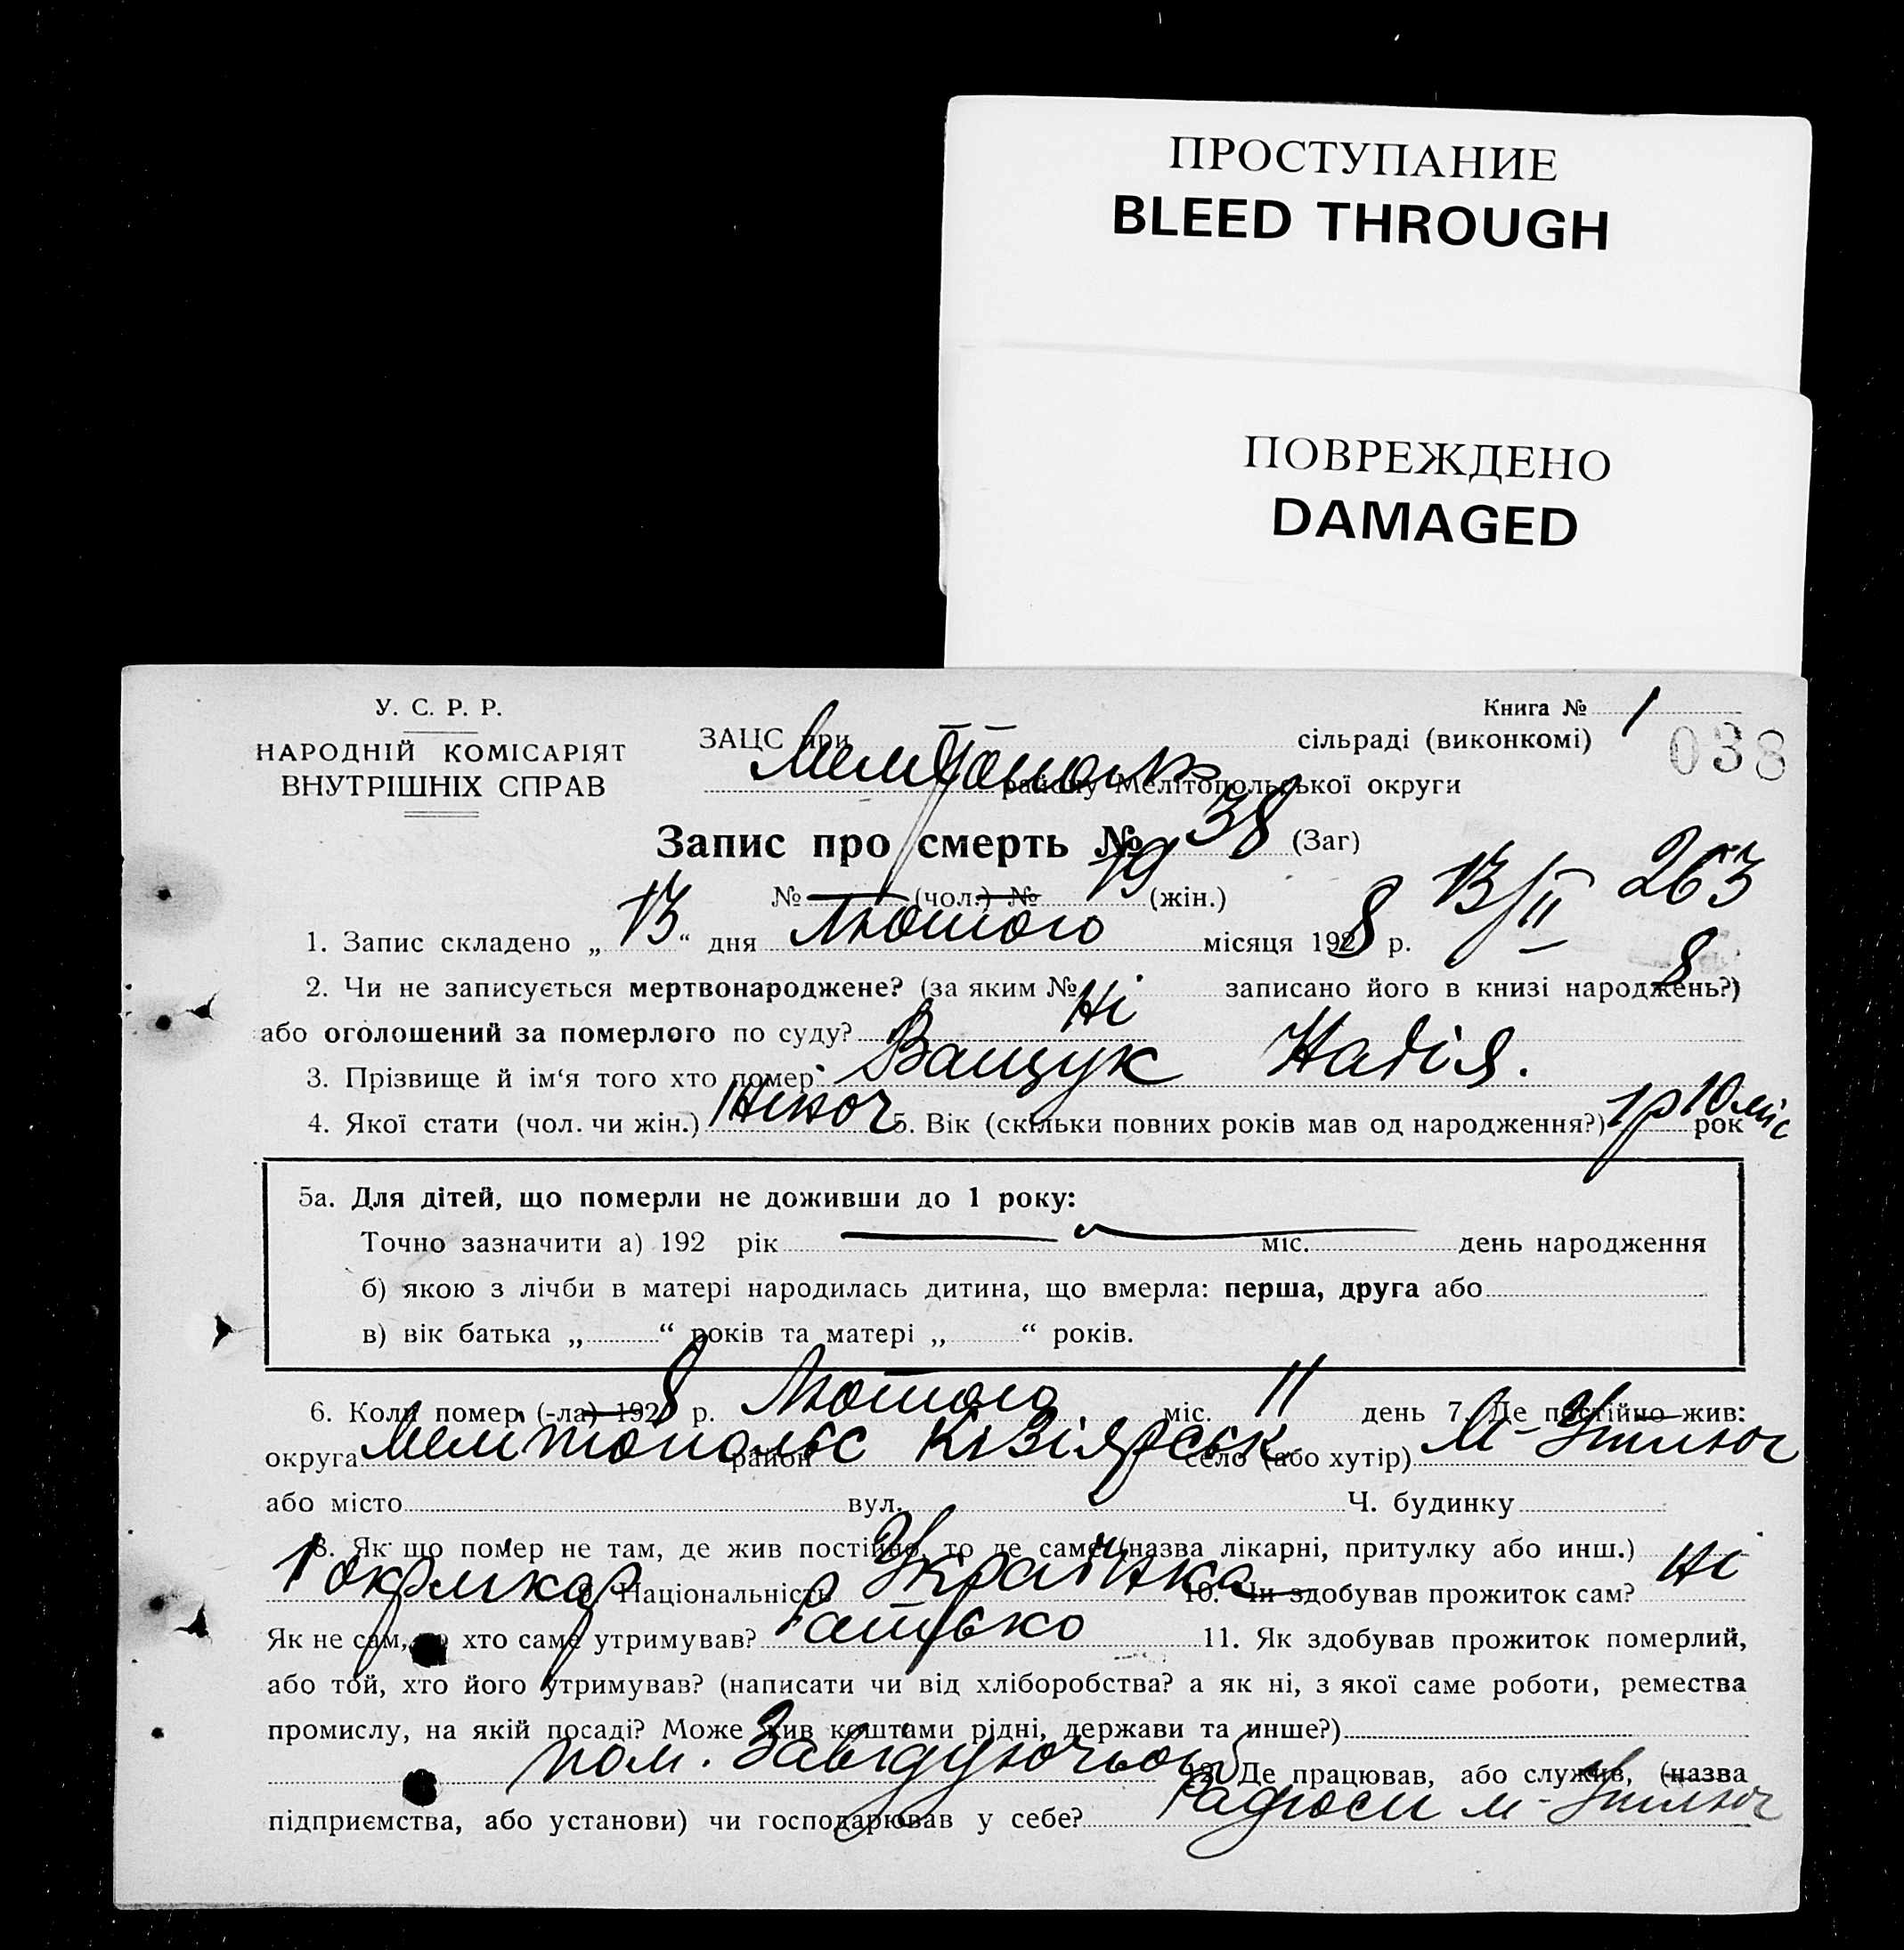 ПРОСТУПАНИЕ
BLEED THROUGH
ПОВРЕЖДЕНО
DAMAGED
У. С. Р. Р.
НАРОДНІЙ КОМІСАРІЯТ
ВНУТРІШНІХ СПРАВ
Книга № 1
038
ЗАЦС при сільраді (виконкомі)
району Мелітопольської округи
Запис про смерть № 38 (Заг)
№ (чол.) № 19 (жін.)
13/II 263
1. Запис складено „ 13 “ дня Лютого місяця 1928 р.
8
2. Чи не записується мертвонароджене? (за яким № Ні записано його в книзі народжень?)
або оголошений за померлого по суду? Ні
3. Прізвище й ім‘я того хто помер: Ващук Надія.
4. Якої стати (чол. чи жін.) Жіноч 5. Вік (скільки повних років мав од народження?) 1р 10 міс рок
5а. Для дітей, що померли не доживши до 1 року:
Точно зазначити а) 192 рік міс. день народження
б) якою з лічби в матері народилась дитина, що вмерла: перша, друга або
в) вік батька „ “ років та матері „ “ років.
6. Коли помер (-ла) 1928 р. Лютого міс. 11 день 7. Де постійно жив:
округа Мелітопольс район Кізіярськ село (або хутір) М-
або місто вул. Ч. будинку
8. Як що помер не там, де жив постійно, то де саме (назва лікарні, притулку або инш.)
1 окрлікар 9. Національність Українка 10. Чи здобував прожиток сам? Ні
Як не сам, хто саме утримував? Батько 11. Як здобував прожиток померлий,
або той, хто його утримував? (написати чи від хліборобства? а як ні, з якої саме роботи, ремества
промислу, на якій посаді? Може жив коштами рідні, держави та инше?)
пом. Завідуючього 12. Де працював, або служив, (назва
підприємства, або установи) чи господарював у себе?